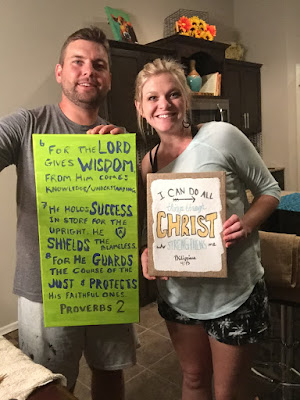 6 FOR THE LORD
GIVES WISDOM
FROM HIM COMES
KNOWLEDGE/UNDERSTANDING
7 HE HOLDS SUCCESS
IN STORE FOR THE
UPRIGHT, HE
SHIELDS THE BLAMELESS.
8 FOR HE GUARDS
THE COURSE OF THE
JUST & PROTECTS
HIS FAITHFUL ONES.
PROVERBS 2
I CAN DO ALL
through
CHRIST
who
STRENGTHENS me
Philippians
4:13